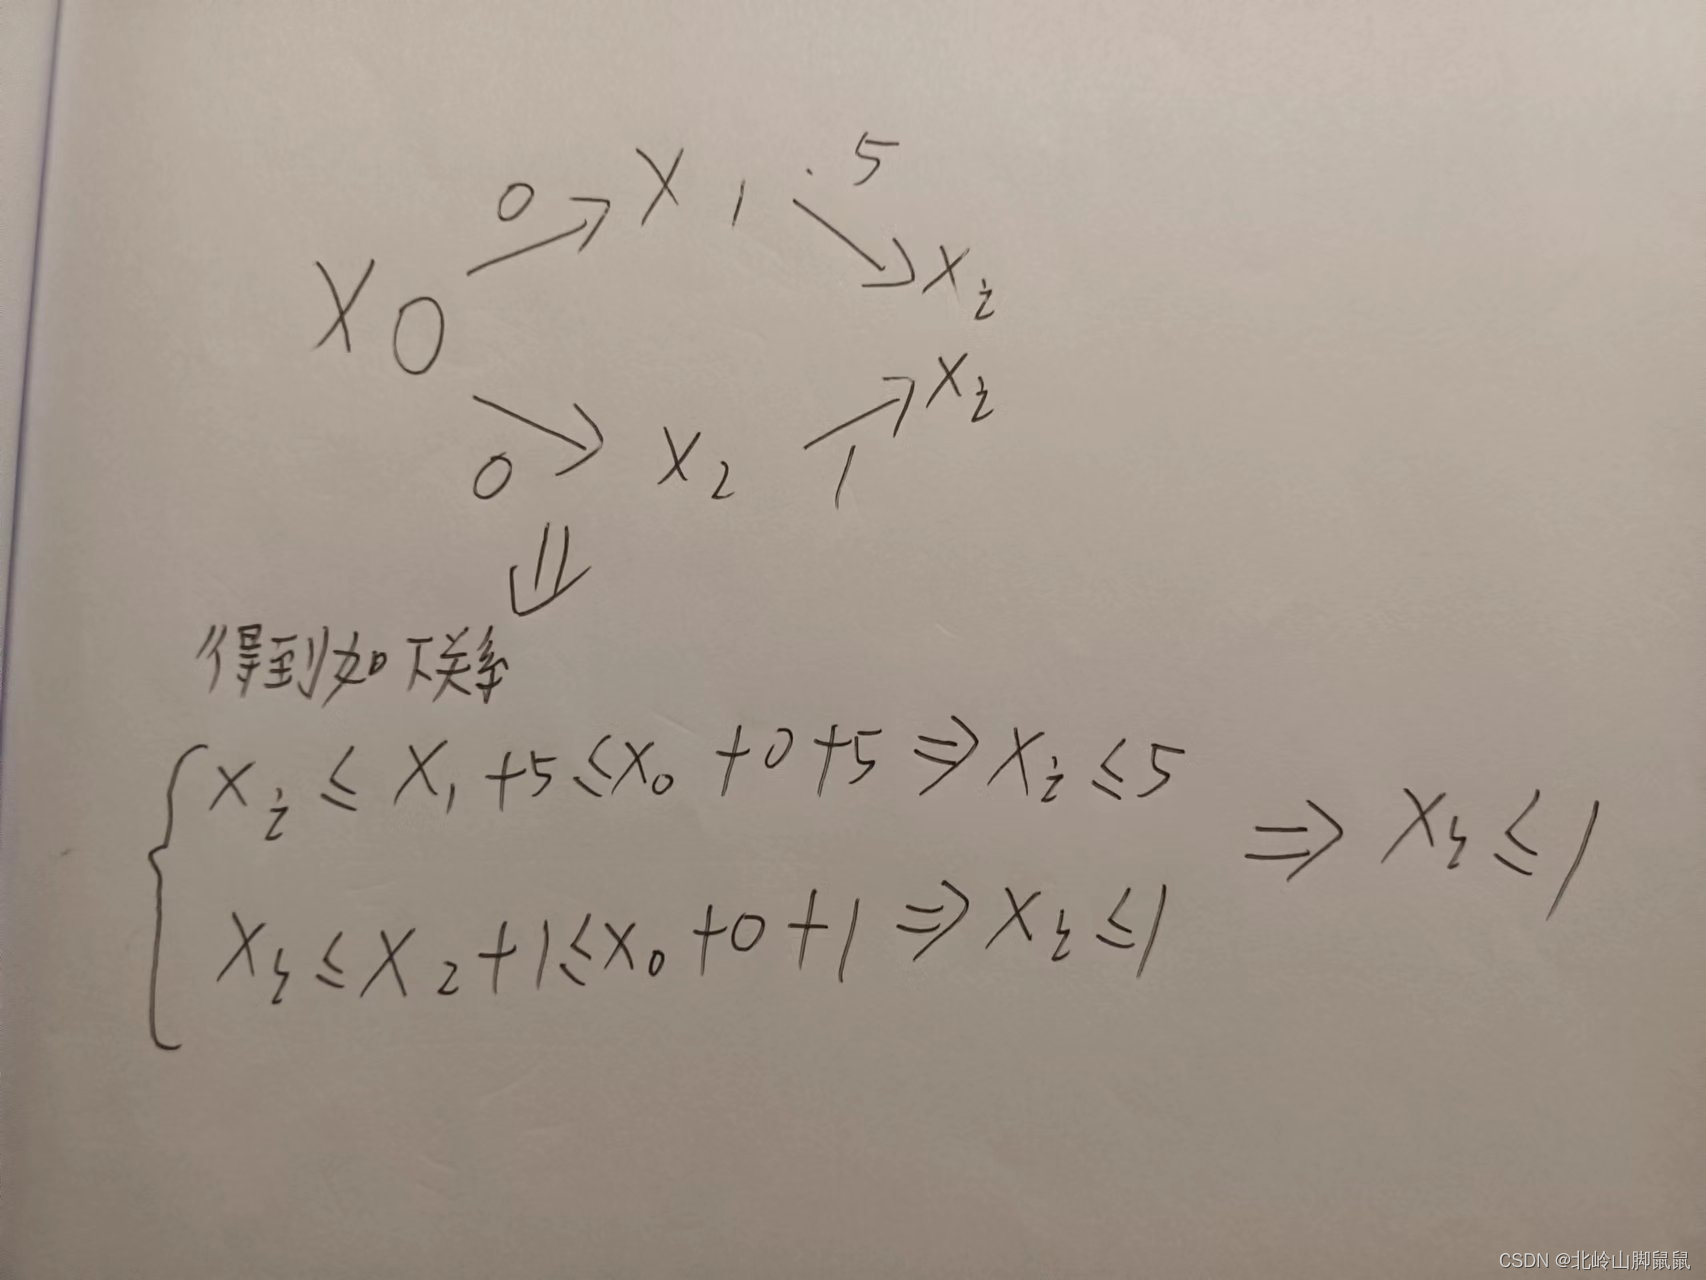 0 X₁ 5
X₀ Xᵢ
Xᵢ
0 X₂ 1
⇓
得到如下关系
Xᵢ ≤ X₁ + 5 ≤ X₀ + 0 + 5 ⇒ Xᵢ ≤ 5
Xᵢ ≤ X₂ + 1 ≤ X₀ + 0 + 1 ⇒ Xᵢ ≤ 1
⇒ Xᵢ ≤ 1
CSDN @北岭山脚鼠鼠